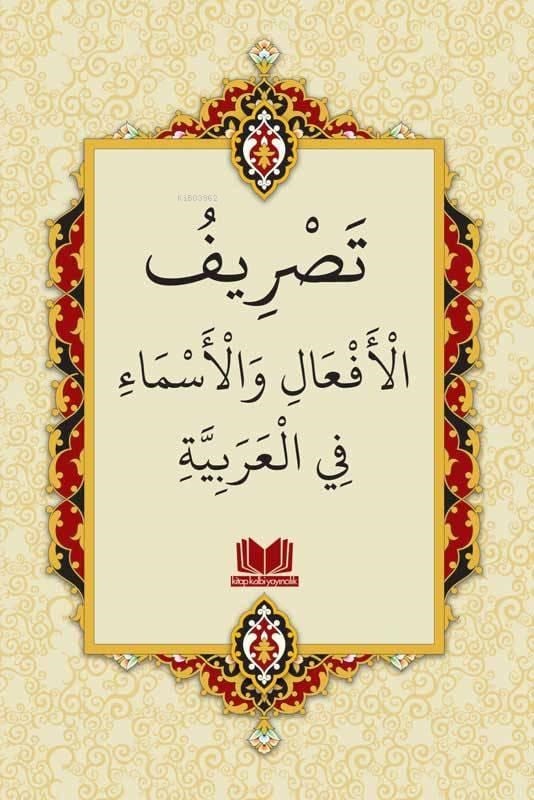 KİB03962
تَصْرِيفُ
الْأَفْعَالِ وَالْأَسْمَاءِ
فِي الْعَرَبِيَّةِ
kitap kalbi yayıncılık